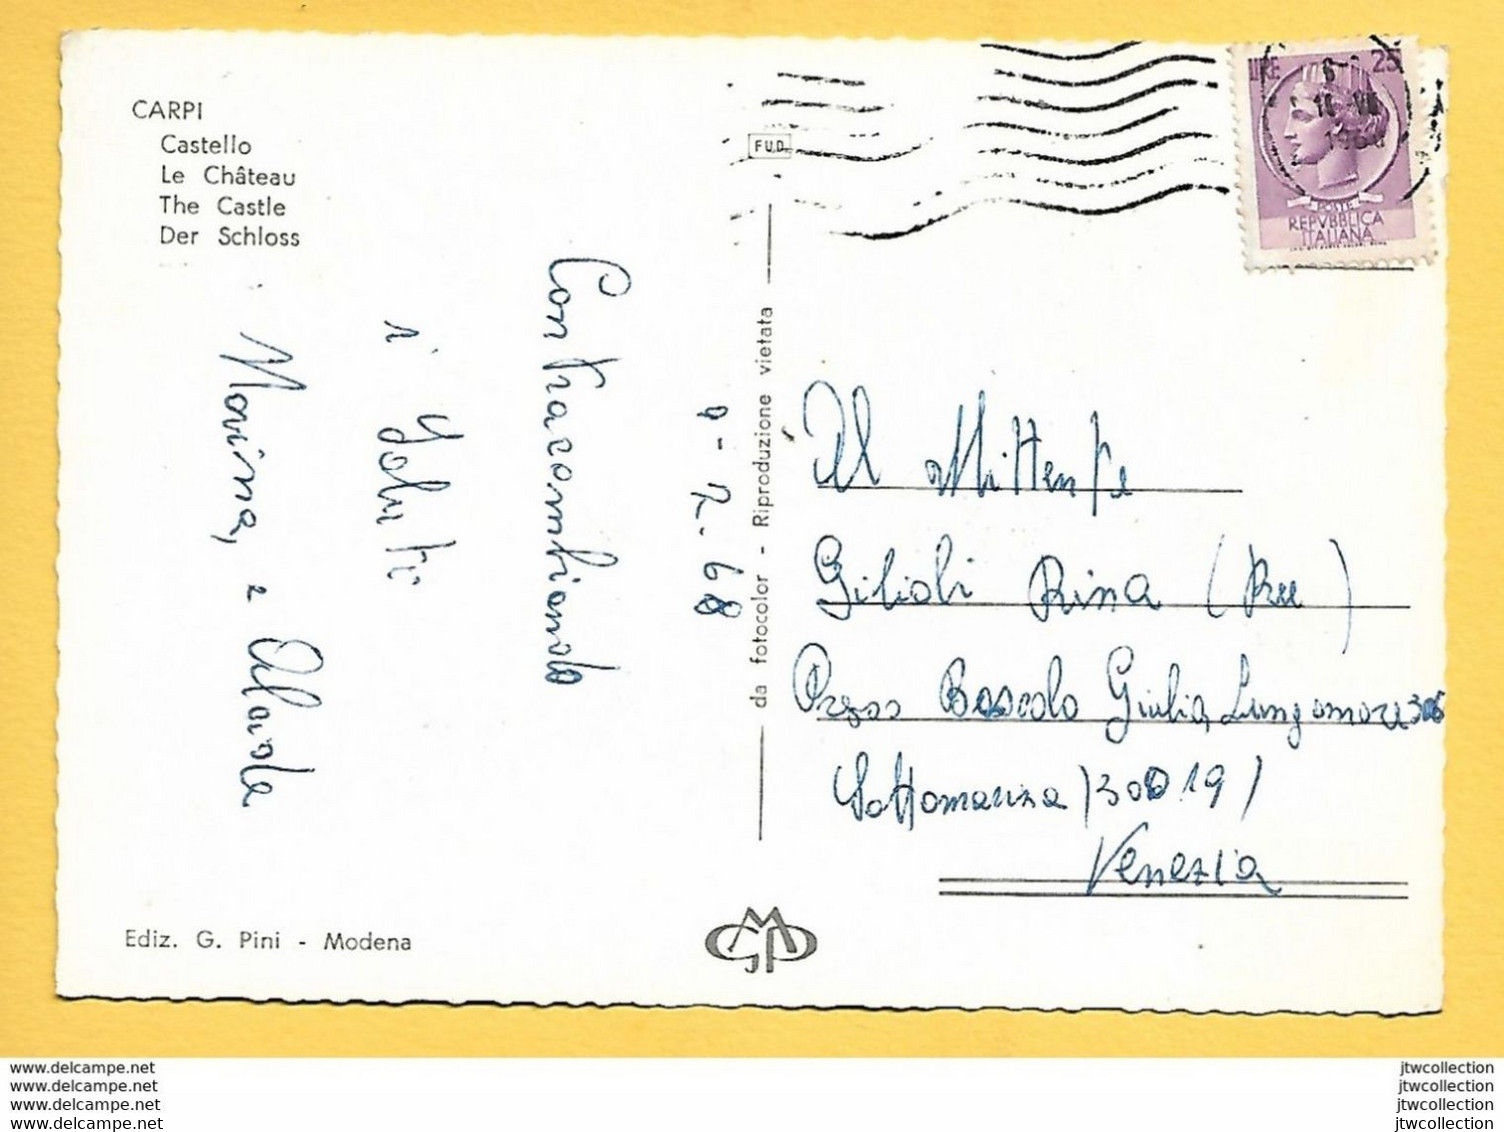 CARPI
Castello
Le Château
The Castle
Der Schloss
F.U.D.
LIRE 25
POSTE
REPVBBLICA
ITALIANA
9-7-68
Contracambiando
i Saluti
Novina, e
da fotocolor - Riproduzione vietata
Il Mittente
Gilioli Rina (
Presso Boscolo Giulia Lungomare 306
Sottomarina (30019)
Venezia
Ediz. G. Pini - Modena
www.delcampe.net
www.delcampe.net
www.delcampe.net
www.delcampe.net
jtwcollection
jtwcollection
jtwcollection
jtwcollection